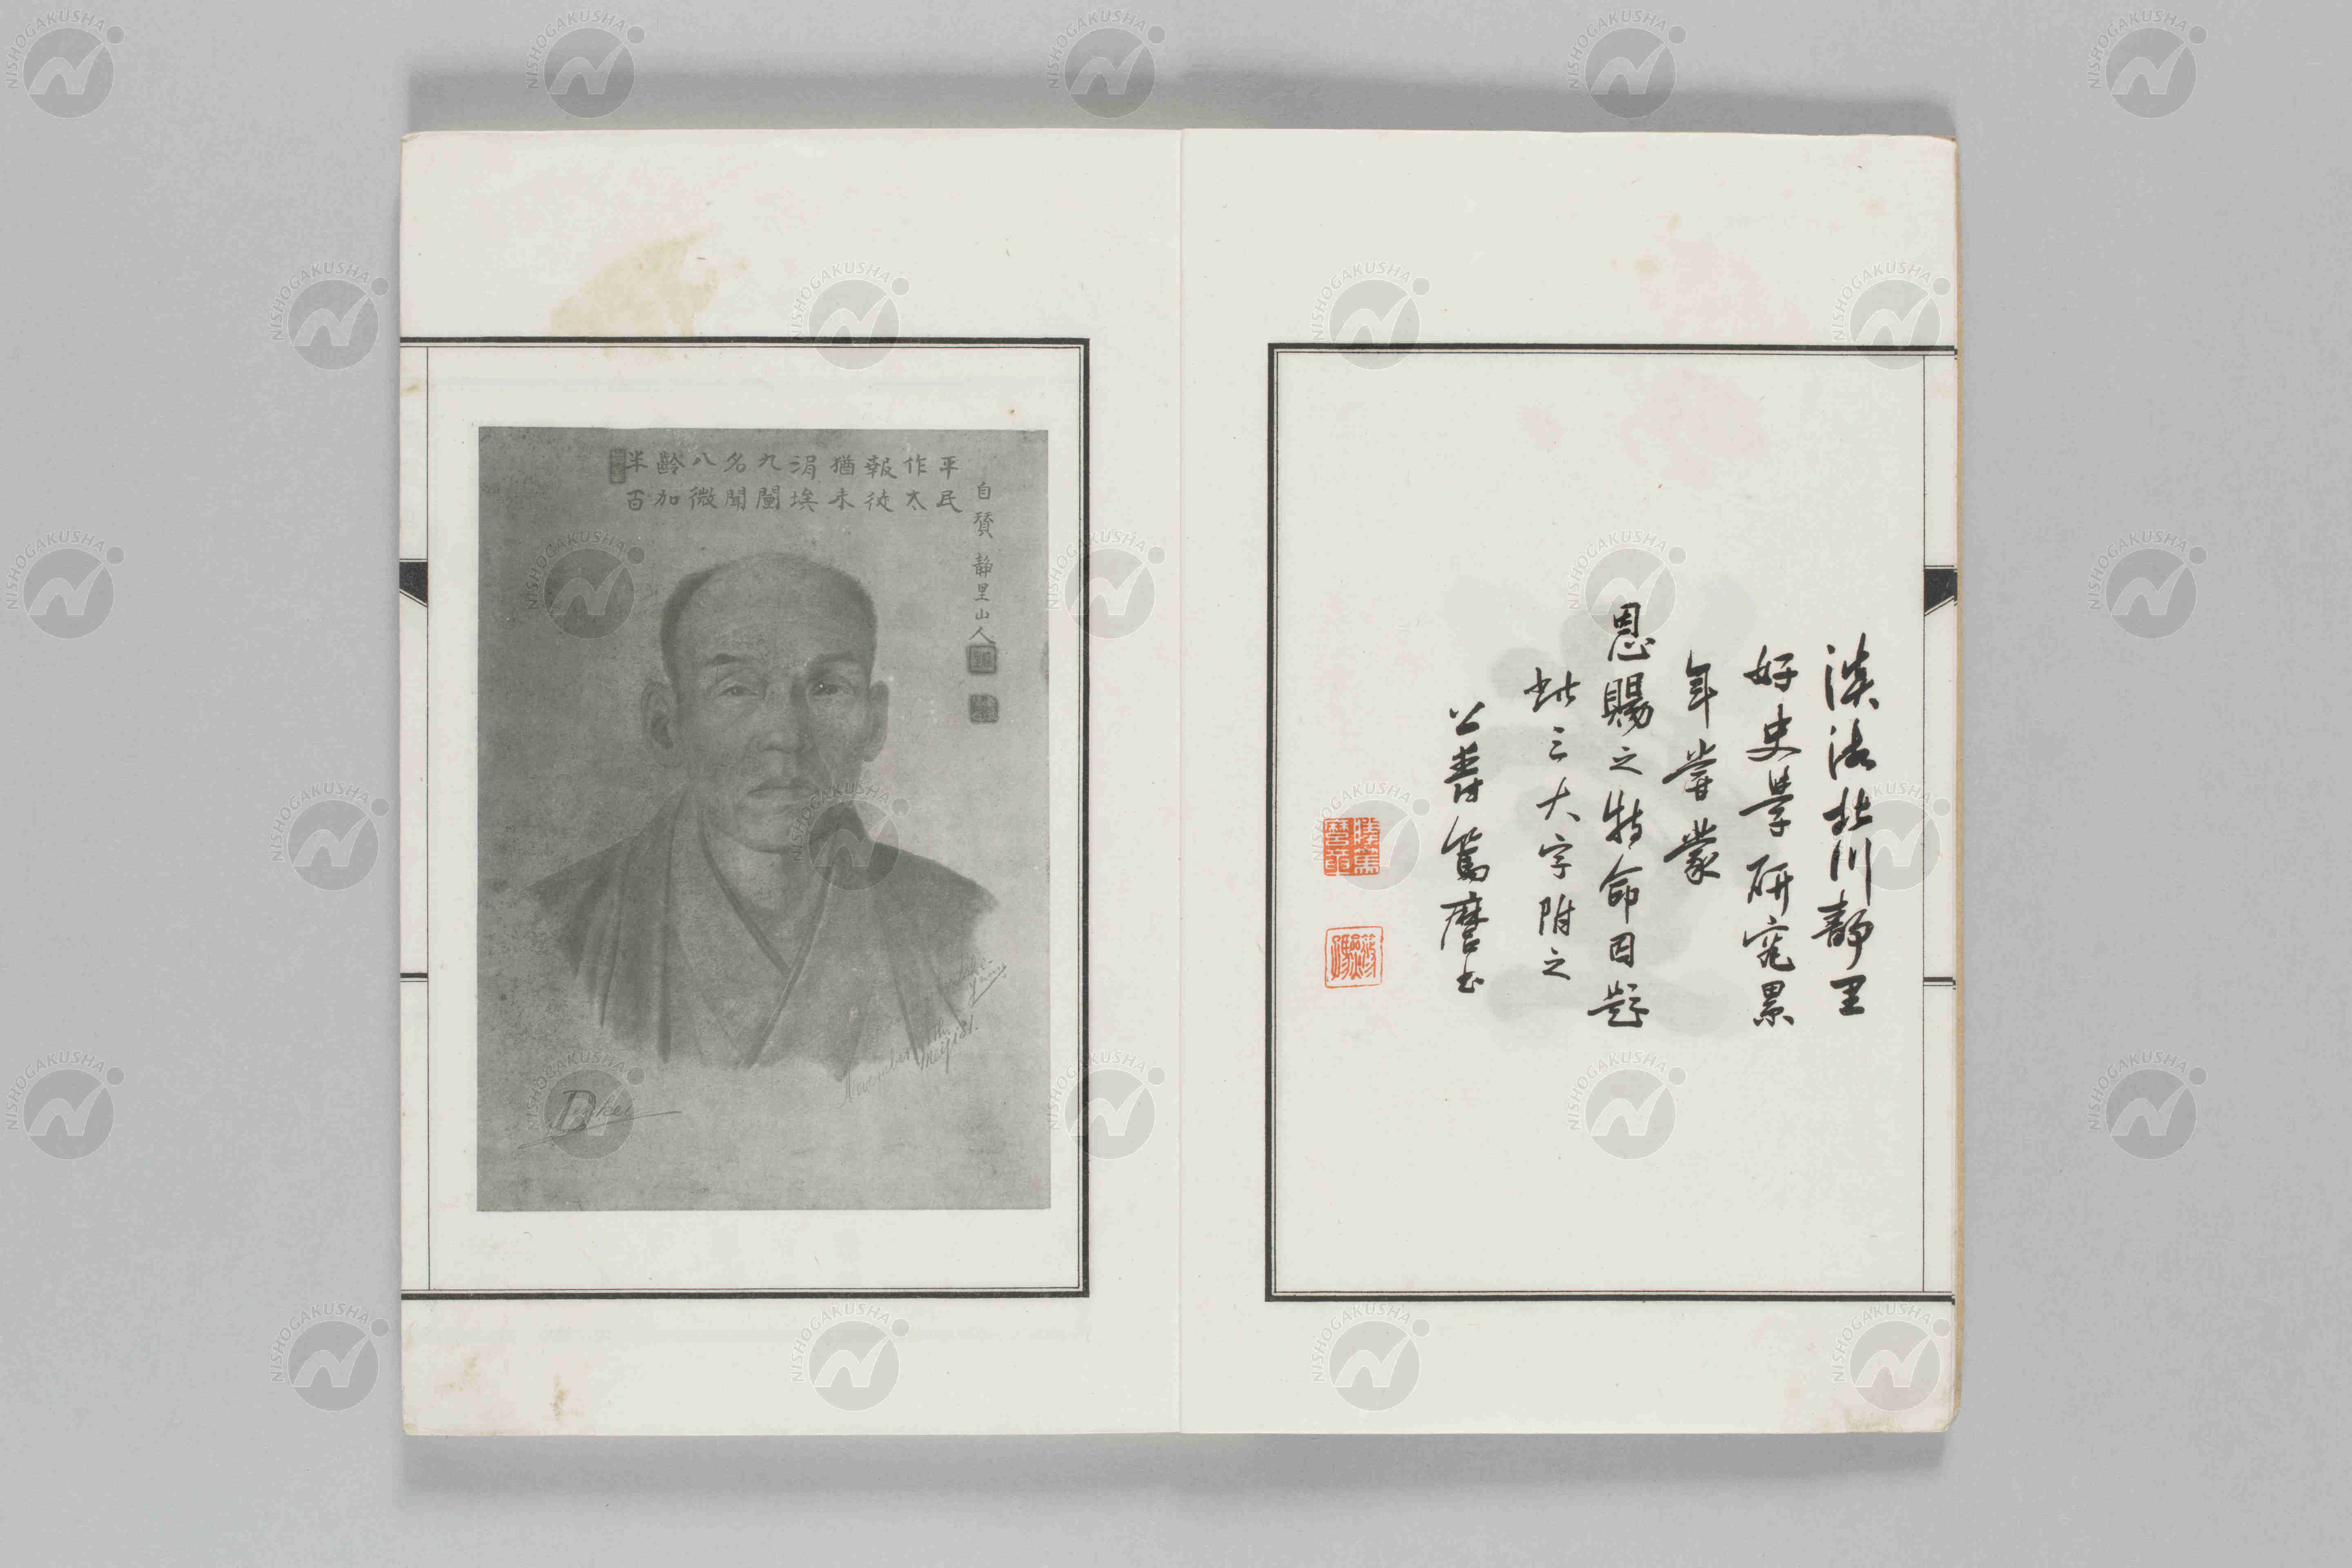 淡海北川静里
好史學研究累
年嘗蒙
恩賜之特命因題
此三大字附之
公爵篤麿書
半百
齡加
八微
名聞
九閽
涓埃
猶未
報徒
作太
平民
自賛 静里山人
November
Meiji 31.
NISHOGAKUSHA